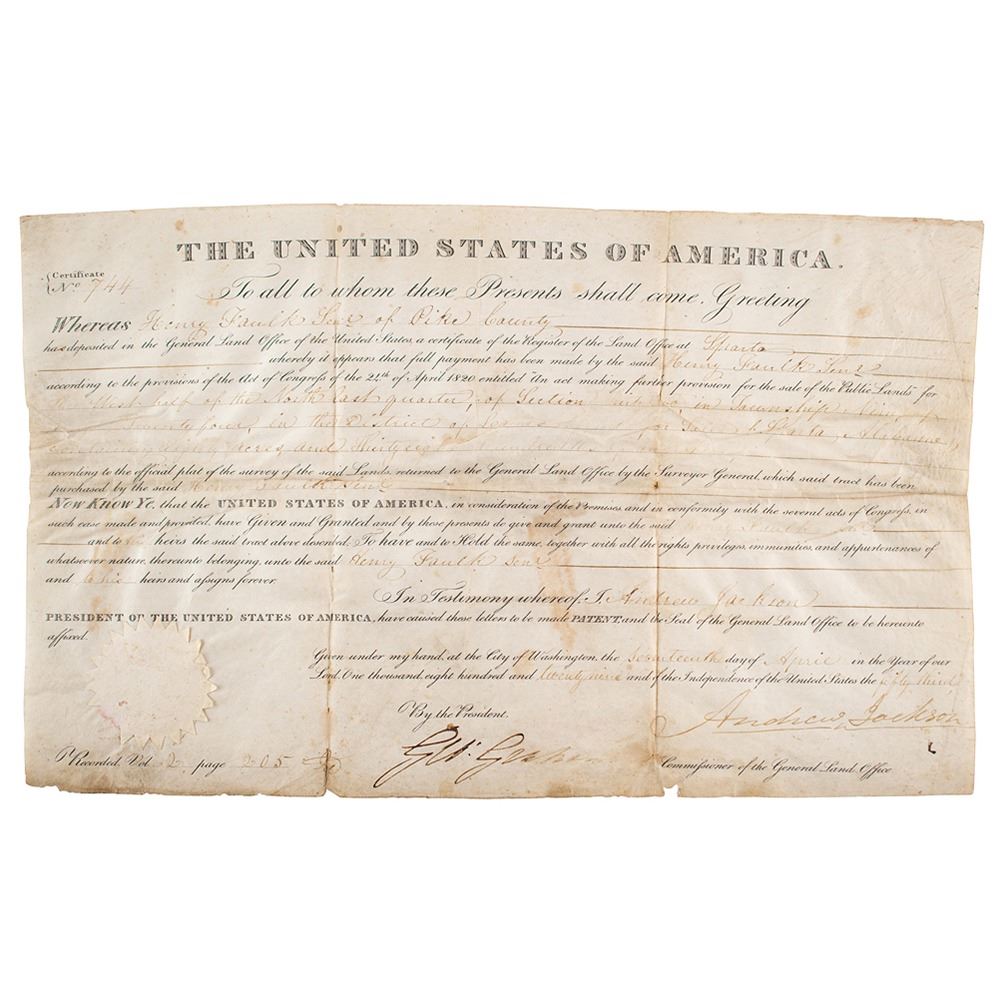 THE UNITED STATES OF AMERICA.
Certificate
No 744
To all to whom these Presents shall come, Greeting
Whereas Henry Faulk Senr of Pike County
has deposited in the General Land Office of the United States, a certificate of the Register of the Land Office at Sparta
whereby it appears that full payment has been made by the said Henry Faulk Senr
according to the provisions of the Act of Congress of the 24th of April 1820 entitled "An act making further provision for the sale of the Public Lands" for
the West half of the North East quarter, of Section in Township Nine, of
Twenty four, in the District of Lands for Sale at Sparta, Alabama,
eighty acres and Thirty eight
according to the official plat of the survey of the said Lands, returned to the General Land Office by the Surveyor General, which said tract has been
purchased by the said Henry Faulk Senr
Now Know Ye, that the UNITED STATES OF AMERICA, in consideration of the Premises and in conformity with the several acts of Congress, in
such case made and provided, have Given and Granted and by these presents do give and grant unto the said Faulk
and to his heirs the said tract above described, To have and to Hold the same, together with all the rights privileges, immunities, and appurtenances of
whatsoever nature, thereunto belonging, unto the said Henry Faulk Senr
and to his heirs and assigns forever.
In Testimony whereof, I, Andrew Jackson
PRESIDENT OF THE UNITED STATES OF AMERICA, have caused these Letters to be made PATENT, and the Seal of the General Land Office to be hereunto
affixed.
Given under my hand, at the City of Washington, the Seventeenth day of April in the Year of our
Lord, One thousand, eight hundred and twenty nine and of the Independence of the United States the fifty third.
By the President. Andrew Jackson
Recorded, Vol 2 page 205 Geo: Graham Commissioner of the General Land Office